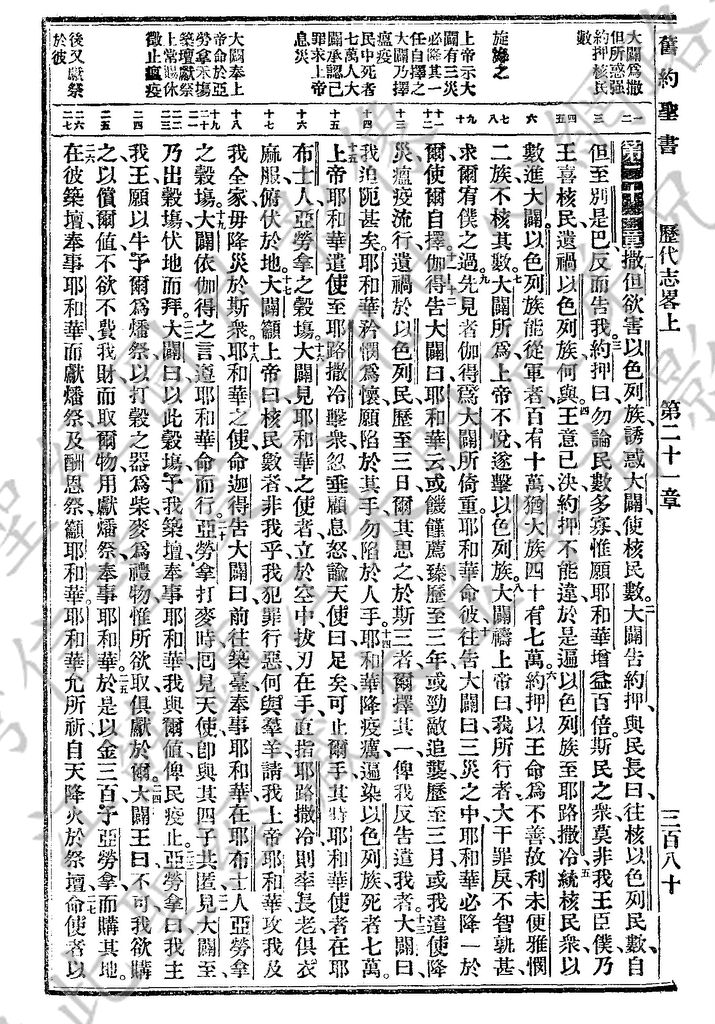 舊約聖書　歷代志畧上　第二十一章　三百八十
大闢爲撒
但所惑强
約押核民
數
旋悔之
上帝示大
闢有三災
必降其一
任自擇之
大闢乃擇
瘟疫
民中死者
七萬人大
闢承認己
罪求上帝
息災
大闢奉上
帝命於亞
勞拿禾塲
築壇獻祭
上帝賜休
徵止瘟疫
後又獻祭
於彼
第二十一章撒但欲害以色列族誘惑大闢使核民數二大闢告約押與民長曰往核以色列民數自
但至別是巴反而告我三約押曰勿論民數多寡惟願耶和華增益百倍斯民之衆莫非我王臣僕乃
王喜核民遺禍以色列族何與四王意已決約押不能違於是遍以色列族至耶路撒冷五統核民衆以
數進大闢以色列族能從軍者百有十萬猶大族四十有七萬六約押以王命爲不善故利未便雅憫
二族不核其數七大闢所爲上帝不悅遂擊以色列族八大闢禱上帝曰我所行者大干罪戾不智孰甚
求爾宥僕之過九先見者伽得爲大闢所倚重耶和華命彼十往告大闢曰三災之中耶和華必降一於
爾使爾自擇十一伽得告大闢曰耶和華云十二或饑饉薦臻歷至三年或勍敵追襲歷至三月或我遣使降
災瘟疫流行遺禍於以色列民歷至三日爾其思之於斯三者爾擇其一俾我反告遣我者十三大闢曰
我迫阨甚矣耶和華矜憫爲懷願陷於其手勿陷於人手十四耶和華降疫癘遍染以色列族死者七萬
十五上帝耶和華遣使至耶路撒冷擊衆忽垂顧息怒諭天使曰足矣可止爾手其時耶和華使者在耶
布士人亞勞拿之穀塲十六大闢見耶和華之使者立於空中拔刃在手直指耶路撒冷則率長老俱衣
麻服俯伏於地十七大闢籲上帝曰核民數者非我乎我犯罪行惡何與羣羊請我上帝耶和華攻我及
我全家毋降災於斯衆十八耶和華之使命迦得告大闢曰前往築臺奉事耶和華在耶布士人亞勞拿
之穀塲十九大闢依伽得之言遵耶和華命而行二十亞勞拿打麥時囘見天使卽與其四子共匿二一見大闢至
乃出穀塲伏地而拜二二大闢曰以此穀塲予我築壇奉事耶和華我與爾値俾民疫止二三亞勞拿曰我主
我王願以牛予爾爲燔祭以打穀之器爲柴麥爲禮物惟所欲取俱獻於爾二四大闢王曰不可我欲購
之以償爾値不欲不費我財而取爾物用獻燔祭奉事耶和華二五於是以金三百予亞勞拿而購其地
二六在彼築壇奉事耶和華而獻燔祭及酬恩祭籲耶和華耶和華允所祈自天降火於祭壇二七命使者以